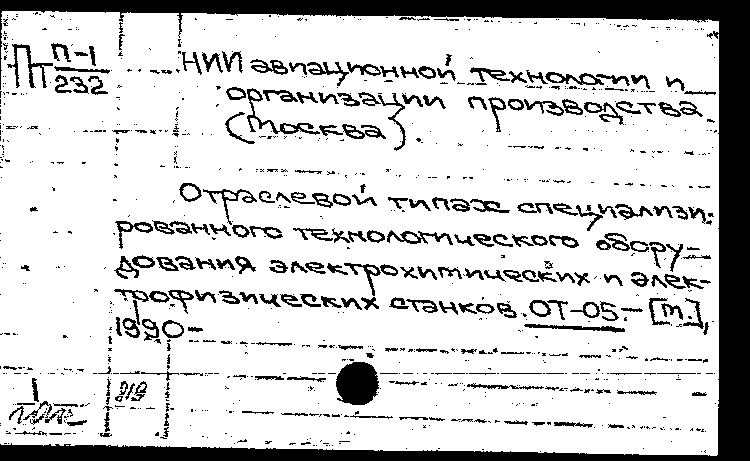 ПП П-1
232
НИИ авиационной технологии и
организации производства
(Москва).
Отраслевой типаж специализи-
рованного технологического обору-
дования электрохимических и элек-
трофизических станков. ОТ-05.— [М.],
1990-
1
219